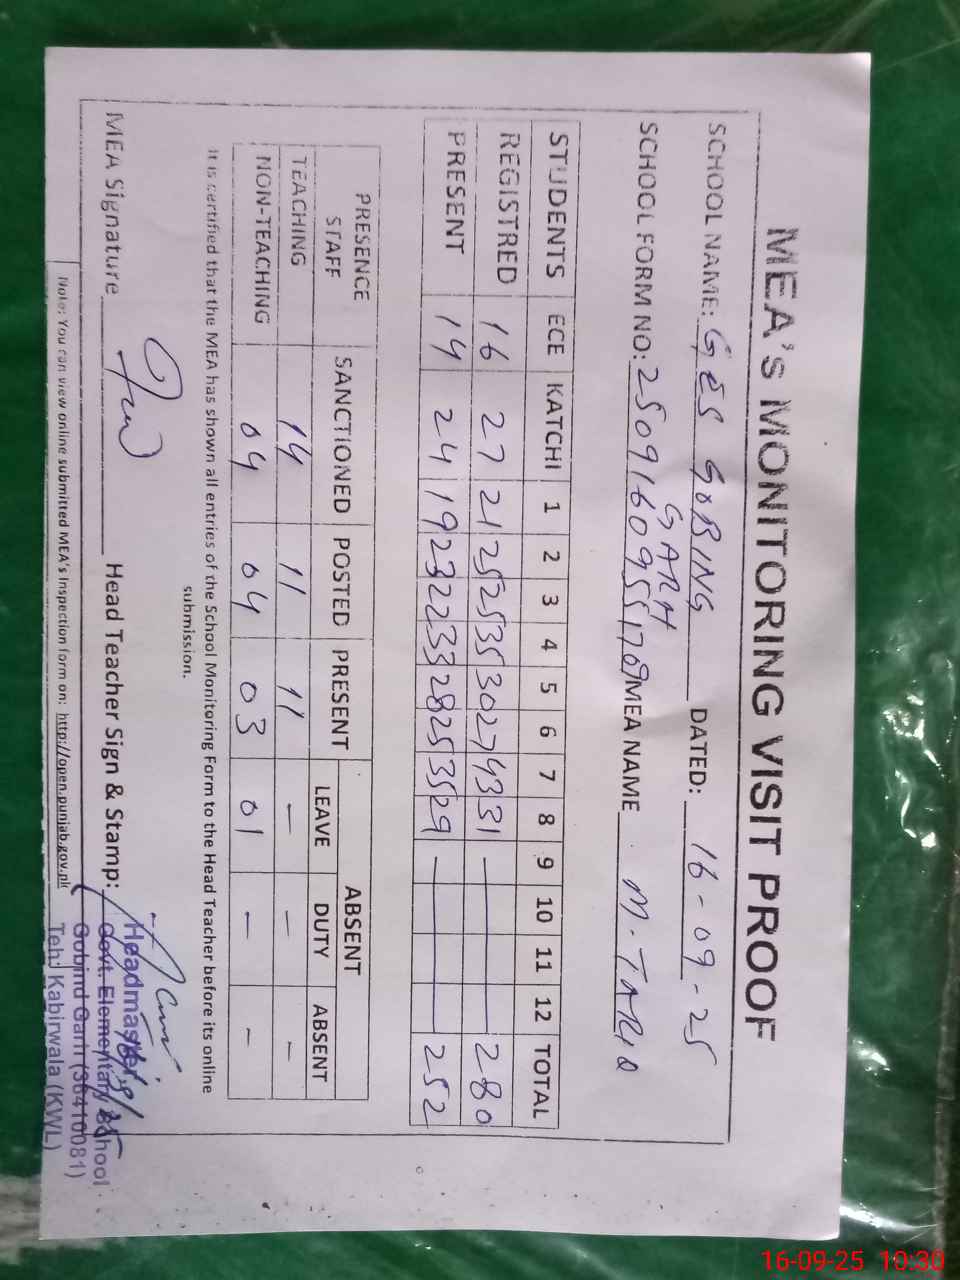 MEA's MONITORING VISIT PROOF
SCHOOL NAME: GES GOBING GARH DATED: 16-09-25
SCHOOL FORM NO: MEA NAME M. TARIQ
STUDENTS ECE KATCHI 1 2 3 4 5 6 7 8 9 10 11 12 TOTAL
REGISTRED 16 27 21 25 25 35 30 27 43 31 — 280
PRESENT 14 24 19 23 22 33 28 25 35 29 — 252
PRESENCE STAFF SANCTIONED POSTED PRESENT ABSENT
LEAVE DUTY ABSENT
TEACHING 14 11 11 — — —
NON-TEACHING 04 04 03 01 — —
It is certified that the MEA has shown all entries of the School Monitoring Form to the Head Teacher before its online
submission.
MEA Signature Head Teacher Sign & Stamp:
Headmaster
Govt. Elementary School
Gobind Garh (36410081)
Teh: Kabirwala (KWL)
Note: You can view online submitted MEA's Inspection form on: http://open.punjab.gov.pk
16-09-25 10:30